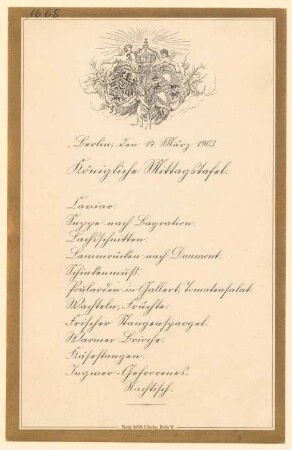 1668
Berlin, den 14 März 1903.
Königliche Mittagstafel.
Caviar.
Suppe nach Bagration.
Lachsschnitten.
Lammrücken nach Daumont.
Schinkenmuß.
Poularden in Gallert, Tomatensalat.
Wachteln, Früchte.
Frischer Stangenspargel.
Warmer Brioche.
Käsestangen.
Ingwer-Gefrorenes.
Nachtisch.